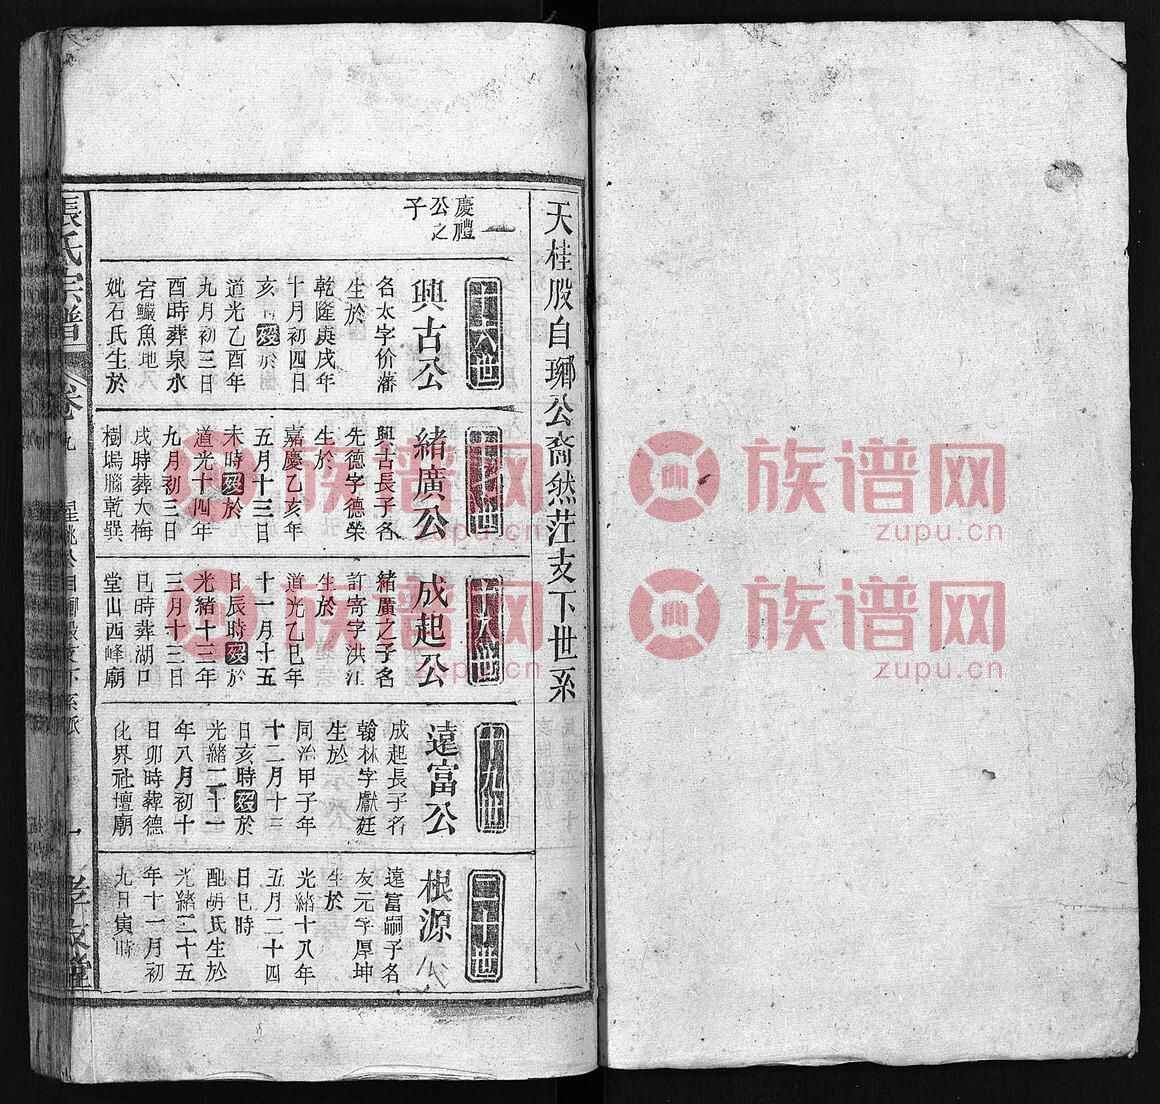 天桂股自瑯公裔然茫支下世系
一
慶禮
公之
子
十六世
興古公
名太字价藩
生於
乾隆庚戌年
十月初四日
亥時歿於
道光乙酉年
九月初三日
酉時葬泉水
宕鱖魚地
妣石氏生於
十七世
緒廣公
興古長子名
先德字德榮
生於
嘉慶乙亥年
五月十三日
未時歿於
道光十四年
九月初三日
戌時葬大梅
樹塢腦乾巽
十八世
成起公
緒廣之子名
訂寄字洪江
生於
道光乙巳年
十一月十五
日辰時歿於
光緒十三年
三月十三日
巳時葬湖口
堂山西峰廟
十九世
遠富公
成起長子名
翰林字獻廷
生於
同治甲子年
十二月十三
日亥時歿於
光緒二十一
年八月初十
日卯時葬德
化界社壇廟
二十世
根源公
遠富嗣子名
友元字厚坤
生於
光緒十八年
五月二十四
日巳時
配胡氏生於
光緒二十五
年十一月初
九日寅時
張氏宗譜
卷九
一
孝友堂
族谱网
zupu.cn
族谱网
zupu.cn
族谱网
zupu.cn
族谱网
zupu.cn